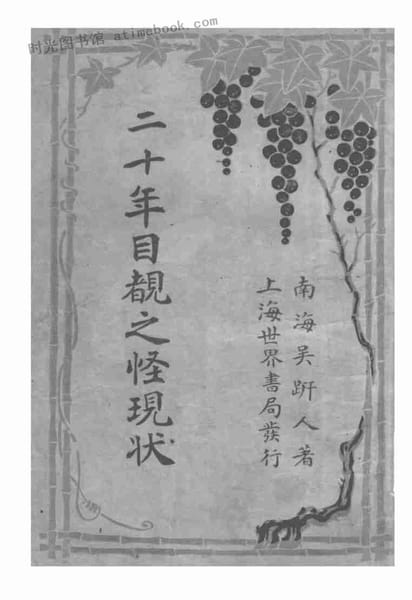 时光图书馆 atimebook.com
二十年目覩之怪現狀
南海吴趼人著
上海世界書局發行